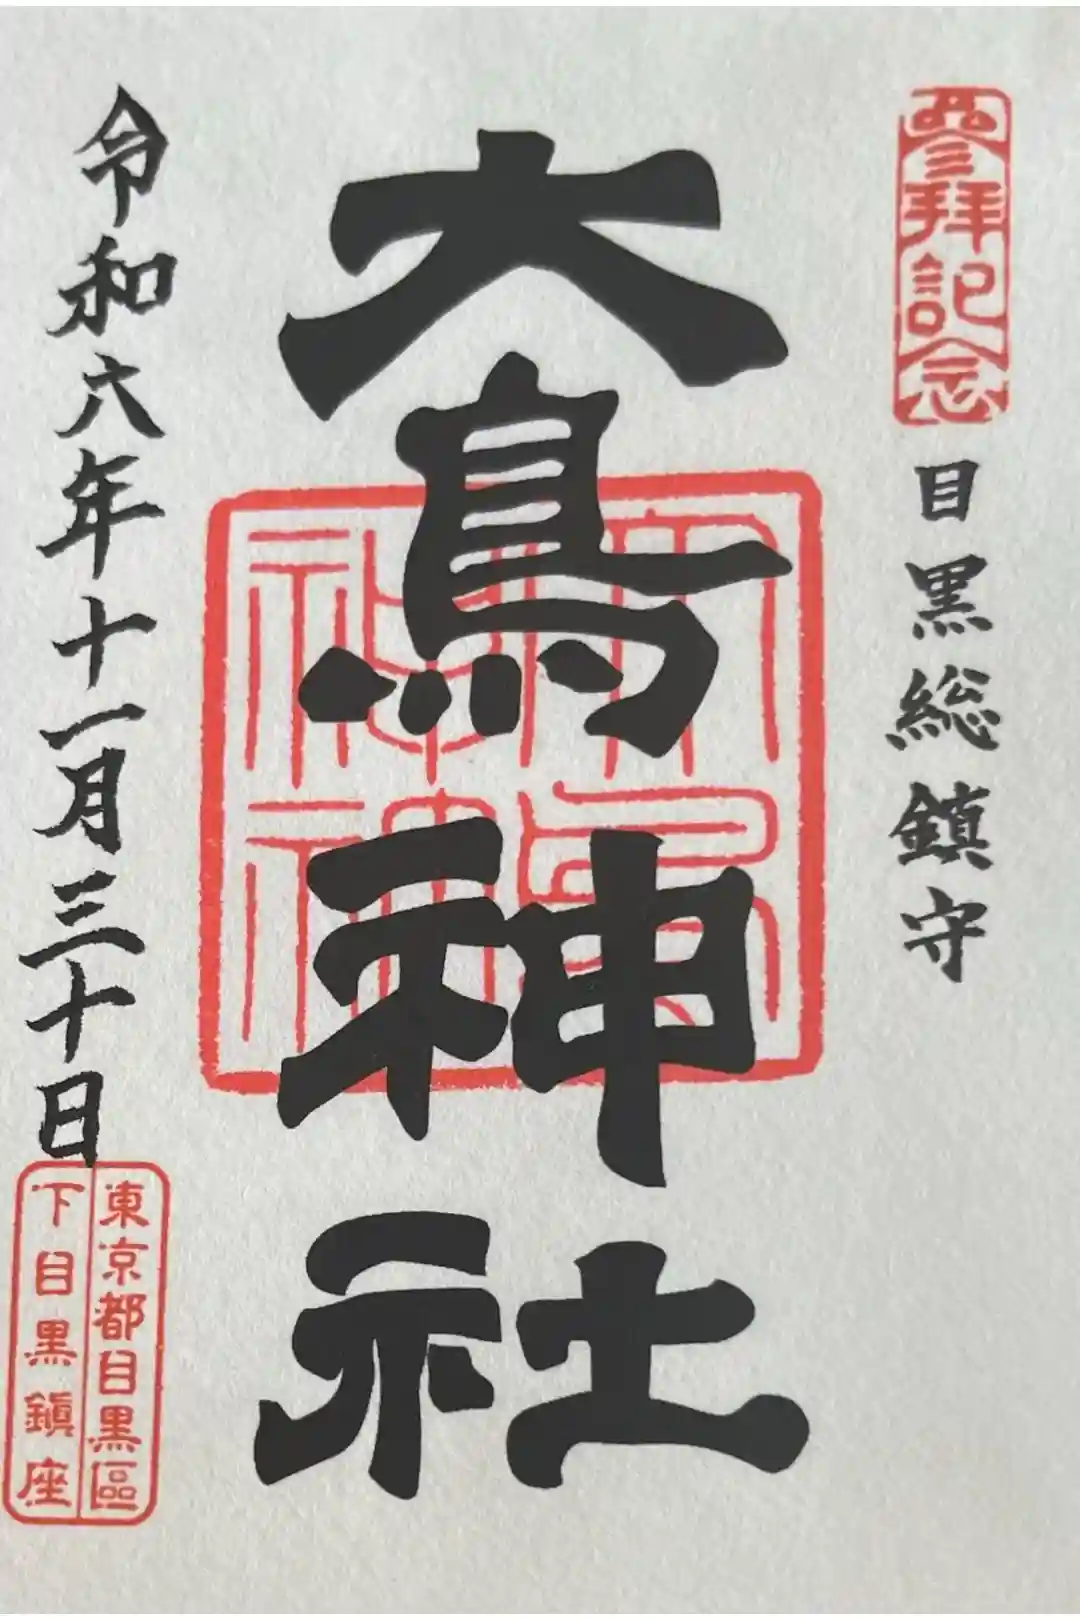 參拜記念
目黒総鎮守
大鳥神社
大鳥神社
令和六年十一月三十日
東京都目黒區
下目黒鎮座